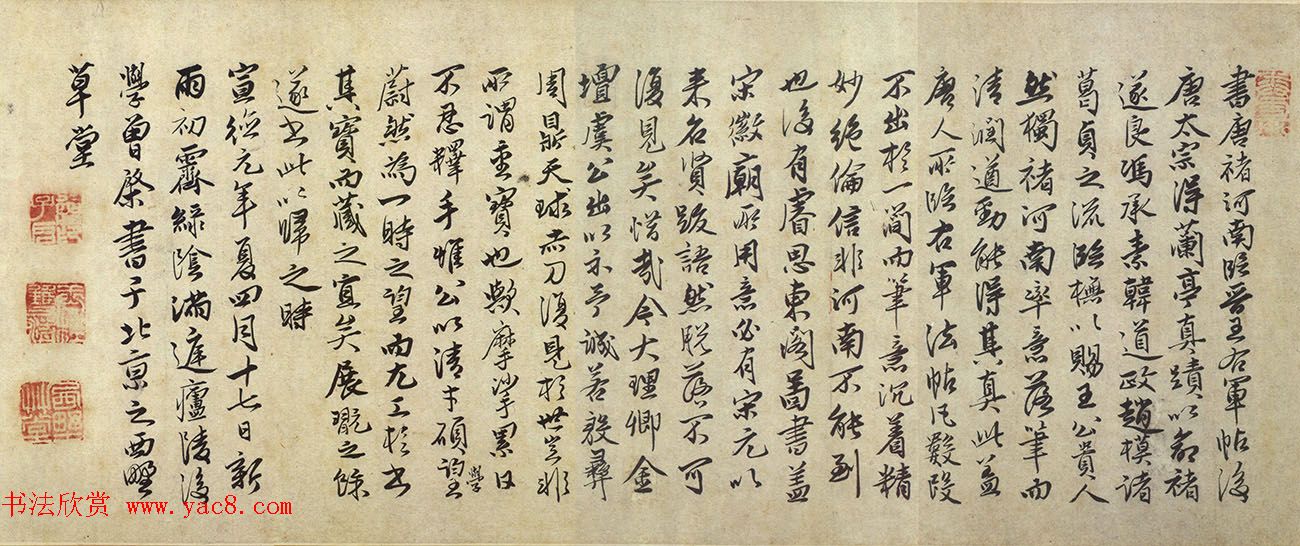 書唐褚河南臨晉王右軍帖後
唐太宗得蘭亭真蹟以命褚
遂良馮承素韓道政趙模諸
葛貞之流臨橅以賜王公貴人
然獨褚河南率意落筆而
清潤遒勁能得其真此蓋
唐人所臨右軍法帖凡數段
不出於一簡而筆意沉着精
妙絶倫信非河南不能到
也後有睿思東閣畵書蓋
宋徽廟所用意必有宋元以
来名賢跋語然脱落不可
復見矣惜哉今大理卿金
壇虞公出以示予誠若殷彝
周鼎天球赤刀復見於世豈非
所謂重寶也歟摩挲累日
不忍釋手惟公以清才碩學望
蔚然為一時之望而尤工於書
其寶而藏之宜矣展翫之餘
遂書此以歸之時
宣德元年夏四月十七日新
雨初霽緑陰滿庭廬陵後
學曾棨書于北京之西墅
草堂
书法欣赏 www.yac8.com